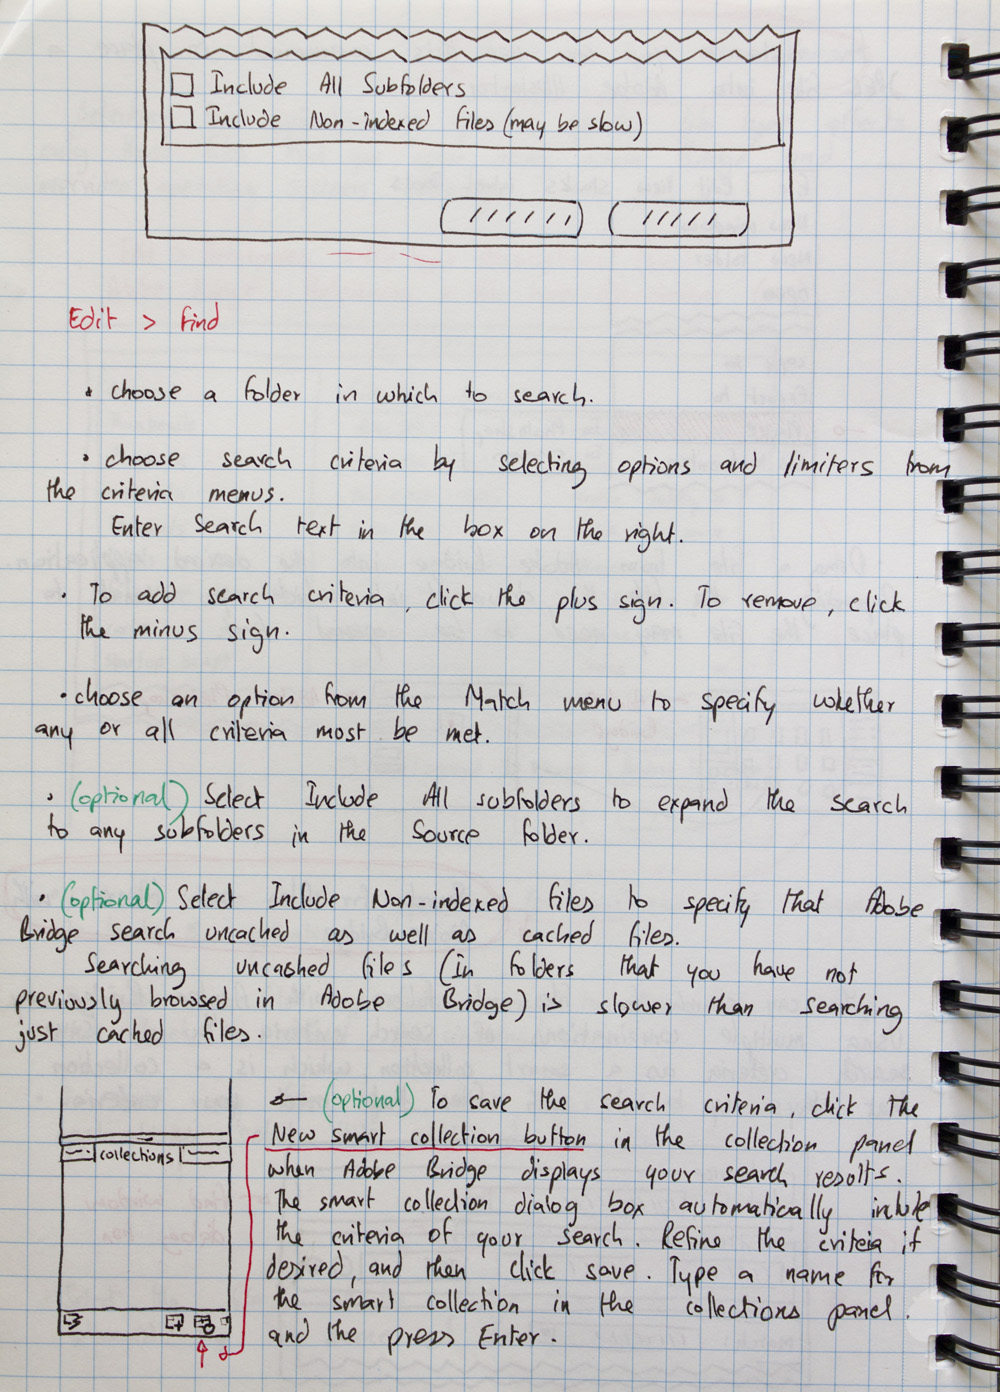 Include All Subfolders
Include Non-indexed files (may be slow)
Edit > Find
• choose a folder in which to search.
• choose search criteria by selecting options and limiters from
the criteria menus.
Enter Search text in the box on the right.
• To add search criteria, click the plus sign. To remove, click
the minus sign.
• choose an option from the Match menu to specify whether
any or all criteria most be met.
• (optional) Select Include All subfolders to expand the search
to any subfolders in the Source folder.
• (optional) Select Include Non-indexed files to specify that Adobe
Bridge search uncached as well as cached files.
Searching uncashed files (In folders that you have not
previously browsed in Adobe Bridge) is slower than searching
just cached files.
collections
← (optional) To save the search criteria, click the
New smart collection button in the collection panel
when Adobe Bridge displays your search results.
The smart collection dialog box automatically include
the criteria of your search. Refine the criteia if
desired, and then click save. Type a name for
the smart collection in the collections panel.
and the press Enter.